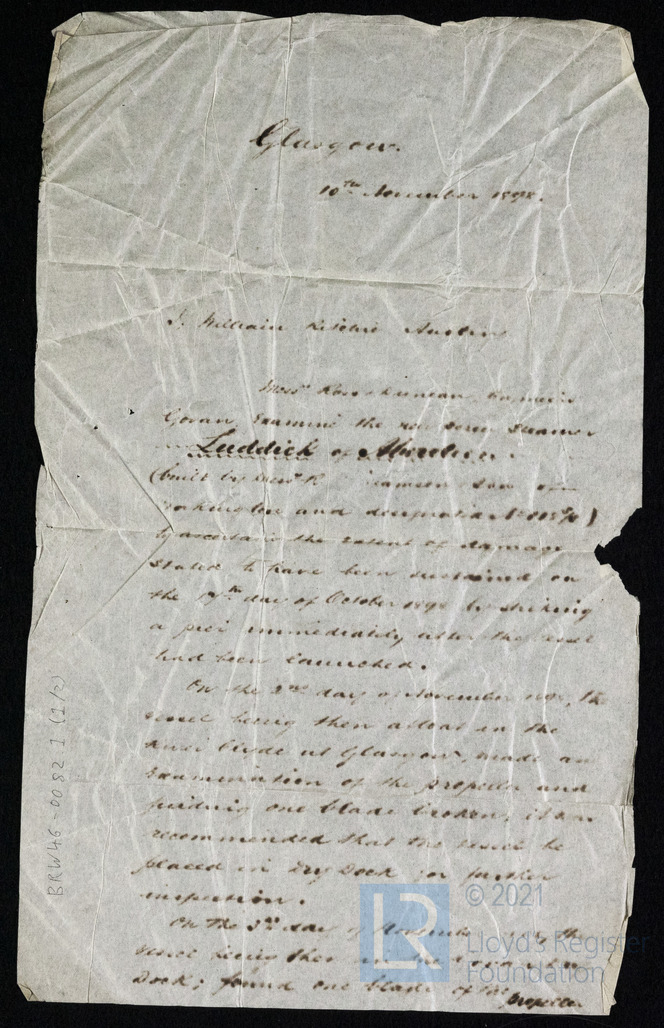 Glasgow.
10th November 1898.
I, William Ritchie Austin
Messrs Ross & Duncan, Engineers
Govan, Examine the new screw steamer
Luddick of Aberdeen.
(built by Messrs R Son of
and designated No )
to ascertain the extent of damage
stated to have been sustained on
the 17th day of October 1898 by striking
a pier immediately after the vessel
had been launched.
On the 2nd day of November 1898, the
vessel being then afloat in the
River Clyde at Glasgow, made an
Examination of the propeller and
finding one blade broken, it was
recommended that the vessel be
placed in Dry Dock for further
inspection.
On the 3rd day of November the
vessel being then in
Dock; found one blade of the
propeller
BRW46-0082 1 (1/2)
LR
© 2021
Lloyd's Register
Foundation